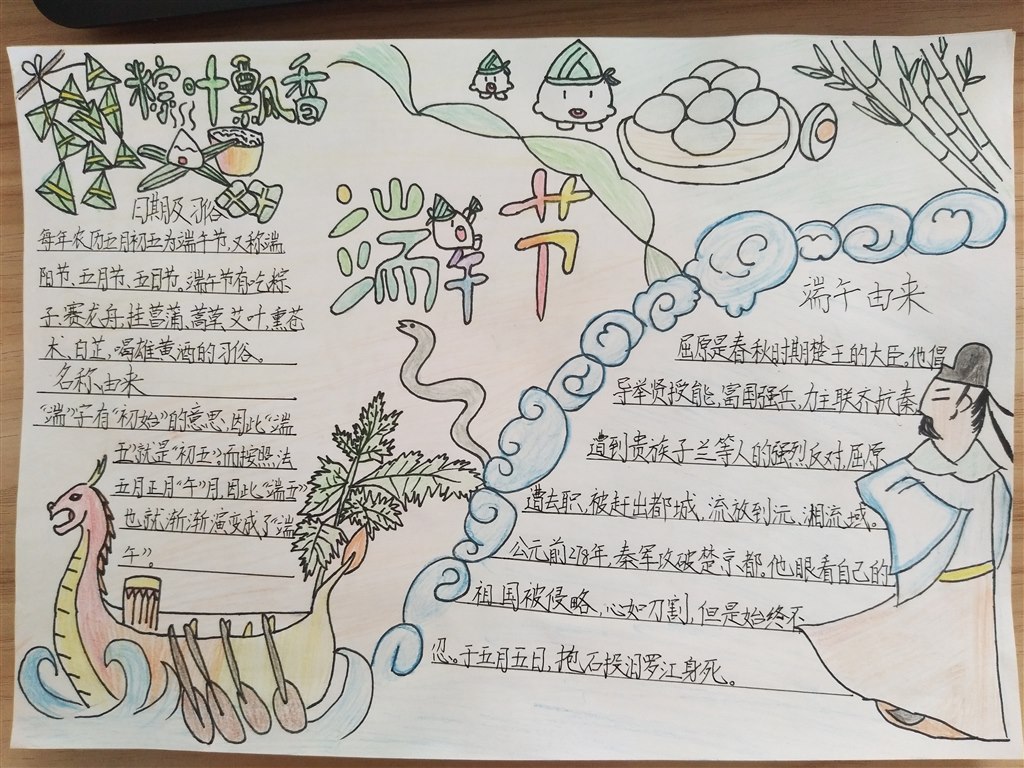 粽叶飘香
端午节
日期及习俗
每年农历五月初五为端午节,又称端
阳节、五月节、五日节。端午节有吃粽
子、赛龙舟、挂菖蒲、蒿草、艾叶,熏苍
术、白芷,喝雄黄酒的习俗。
名称由来
“端”字有“初始”的意思,因此“端
五”就是“初五”。而按照历法
五月正月“午”月,因此“端五”
也就渐渐演变成了“端
午”。
端午由来
屈原是春秋时期楚王的大臣。他倡
导举贤授能,富国强兵,力主联齐抗秦,
遭到贵族子兰等人的强烈反对,屈原
遭去职,被赶出都城,流放到沅、湘流域。
公元前278年,秦军攻破楚京都。他眼看自己的
祖国被侵略,心如刀割,但是始终不
忍。于五月五日,抱石投汨罗江身死。